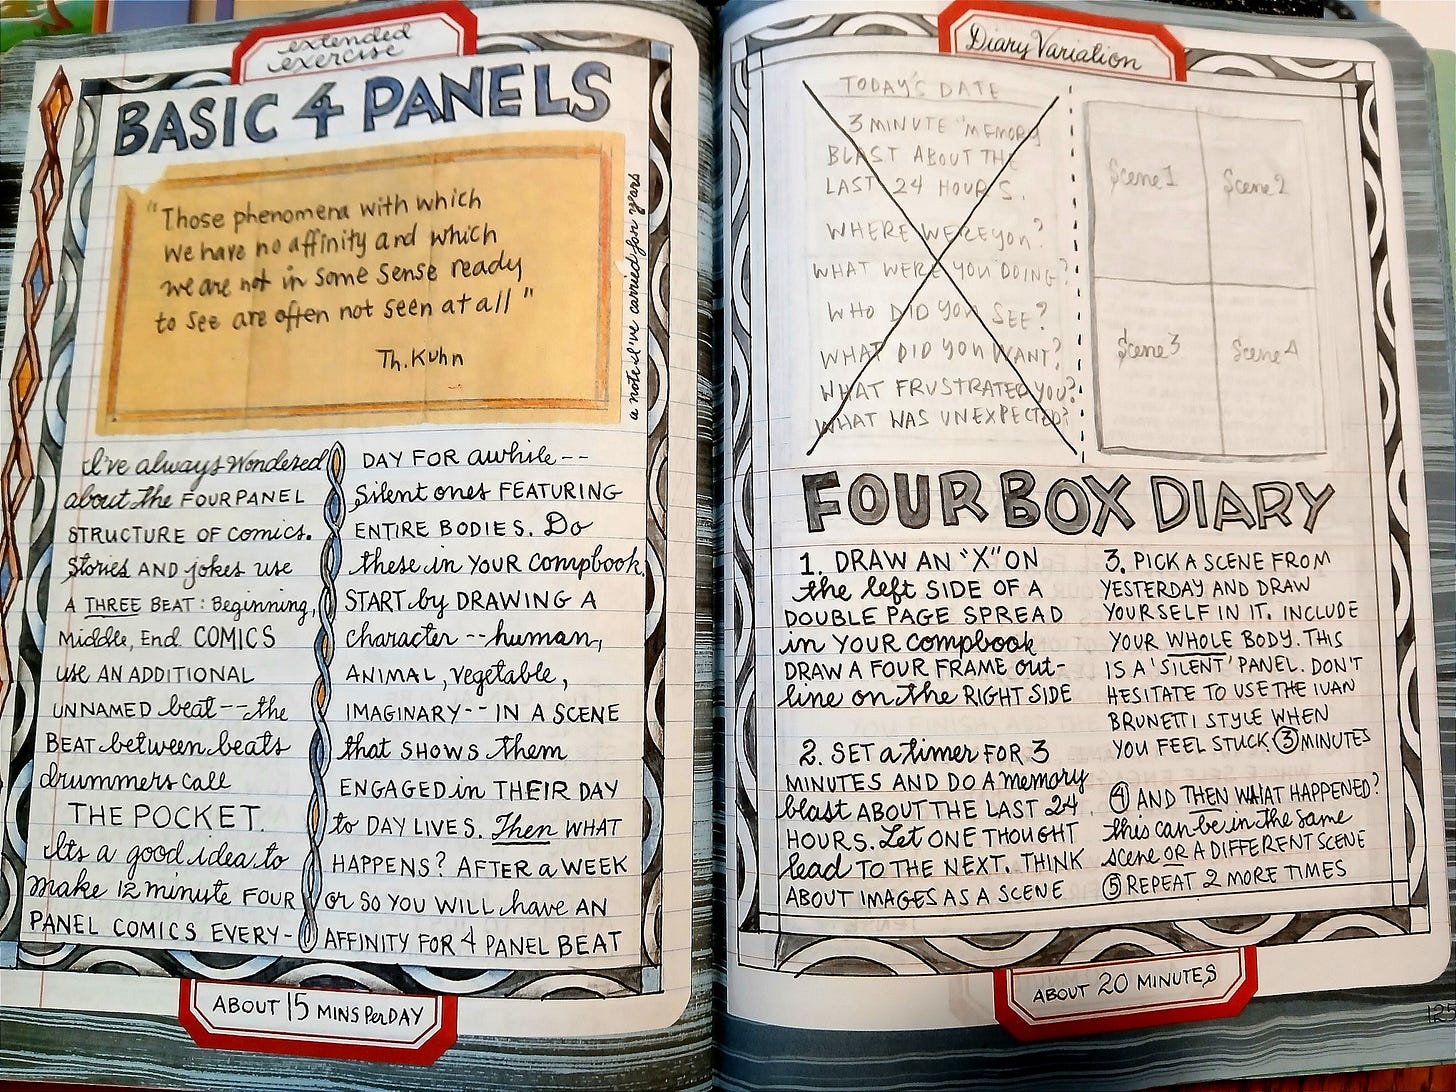 extended
exercise
BASIC 4 PANELS
"Those phenomena with which
we have no affinity and which
we are not in some sense ready
to see are often not seen at all"
Th. Kuhn
a note I've carried for years
I've always Wondered
about the FOUR PANEL
STRUCTURE OF comics.
Stories AND jokes use
A THREE BEAT: Beginning,
Middle, End. COMICS
use AN ADDITIONAL
UNNAMED beat -- the
BEAT between beats
drummers call
THE POCKET.
Its a good idea to
make 12 minute FOUR
PANEL COMICS EVERY-
DAY FOR awhile --
Silent ones FEATURING
ENTIRE BODIES. Do
these in YOUR compbook.
START by DRAWING A
character -- human,
ANIMAL, vegetable,
IMAGINARY -- IN A SCENE
that SHOWS them
ENGAGED in THEIR DAY
to DAY LIVES. Then WHAT
HAPPENS? AFTER a WEEK
or SO YOU WILL have AN
AFFINITY FOR 4 PANEL BEAT
ABOUT 15 MINS PER DAY
Diary Variation
TODAY'S DATE
3 MINUTE "MEMORY
BLAST ABOUT THE
LAST 24 HOURS.
WHERE WERE YOU?
WHAT WERE YOU DOING?
WHO DID YOU SEE?
WHAT DID YOU WANT?
WHAT FRUSTRATED YOU?
WHAT WAS UNEXPECTED?
Scene 1
Scene 2
Scene 3
Scene 4
FOUR BOX DIARY
1. DRAW AN "X" ON
the left SIDE OF A
DOUBLE PAGE SPREAD
in YOUR compbook
DRAW A FOUR FRAME out-
line on the RIGHT SIDE
2. SET a timer FOR 3
MINUTES AND DO A memory
blast ABOUT THE LAST 24
HOURS. Let ONE THOUGHT
lead TO THE NEXT. THINK
ABOUT IMAGES AS A SCENE
3. PICK A SCENE FROM
YESTERDAY AND DRAW
YOURSELF IN IT. INCLUDE
YOUR WHOLE BODY. THIS
IS A 'SILENT' PANEL. DON'T
HESITATE TO USE THE IVAN
BRUNETTI STYLE WHEN
YOU FEEL STUCK 3 MINUTES
4 AND THEN WHAT HAPPENED?
this can be in the same
scene OR A DIFFERENT SCENE
5 REPEAT 2 MORE TIMES
ABOUT 20 MINUTES
125